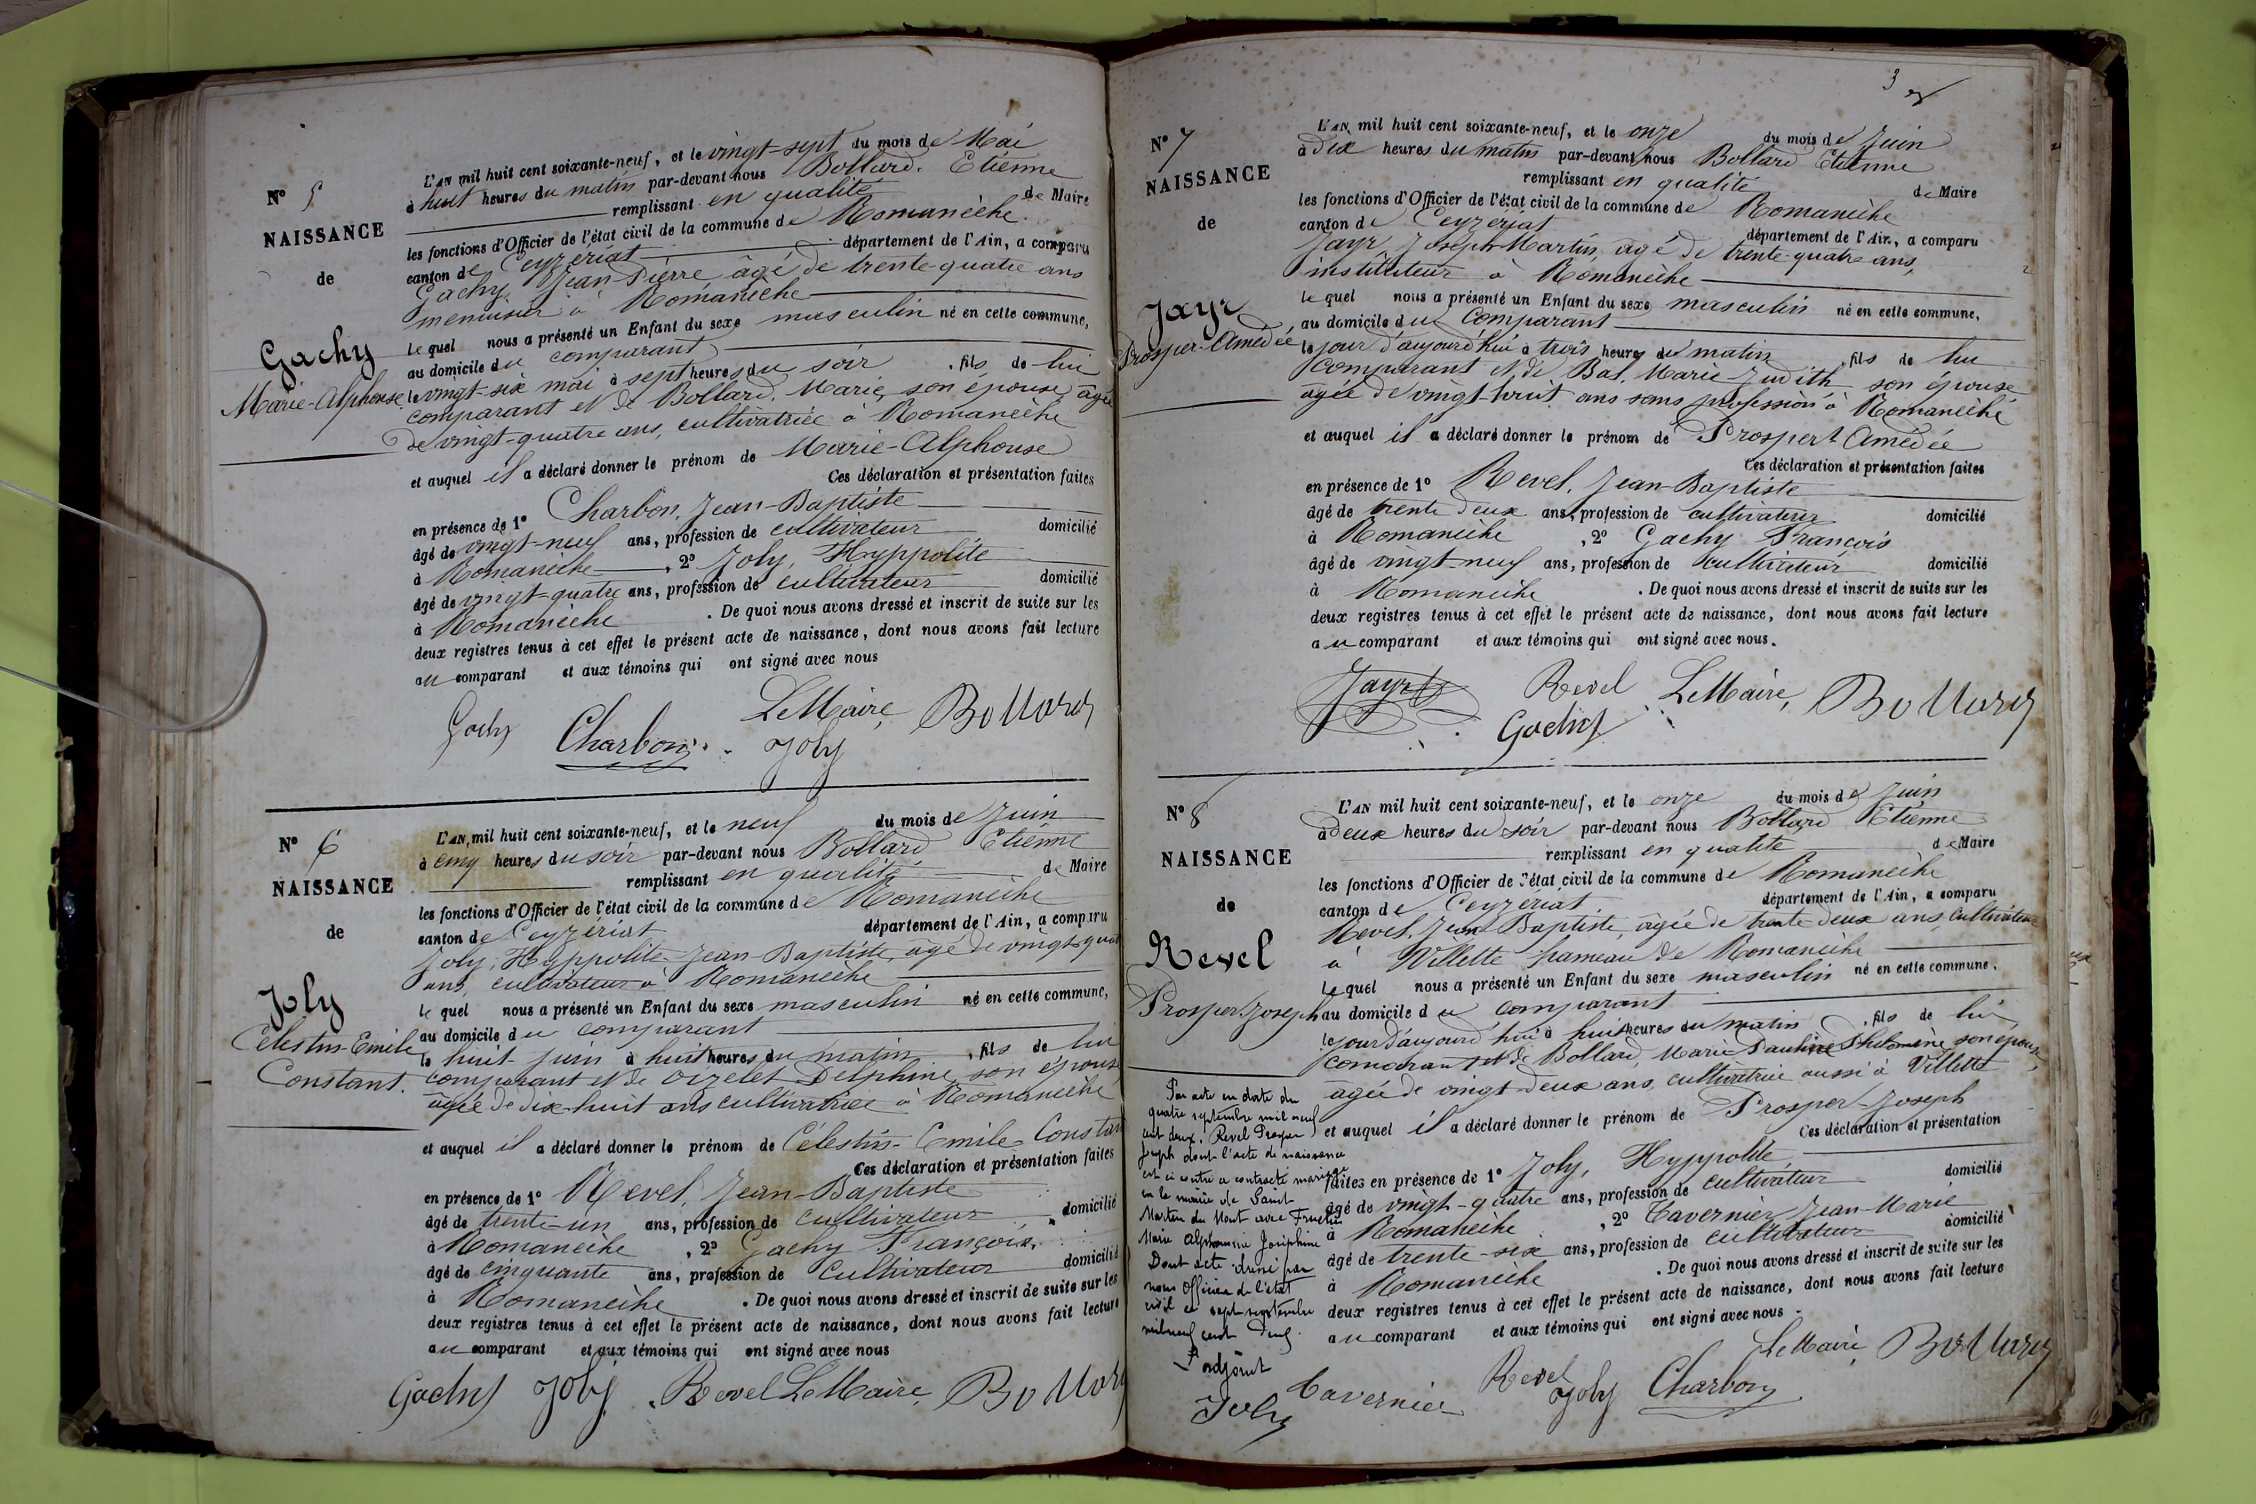 N° 5
NAISSANCE
de
Gachy
Marie-Alphonse
L'AN mil huit cent soixante-neuf, et le vingt-sept du mois de Mai
à huit heures du matin par-devant nous Bollard, Etienne
remplissant en qualité de Maire
les fonctions d'Officier de l'état civil de la commune de Romanèche
canton de Ceyzériat département de l'Ain, a comparu
Gachy, Jean-Pierre âgé de trente-quatre ans
menuisier à Romanèche
le quel nous a présenté un Enfant du sexe masculin né en cette commune,
au domicile du comparant
le vingt-six mai à sept heures du soir, fils de lui
comparant et de Bollard, Marie, son épouse, âgée
de vingt-quatre ans, cultivatrice à Romanèche
et auquel il a déclaré donner le prénom de Marie-Alphonse
Ces déclaration et présentation faites
en présence de 1° Charbon, Jean-Baptiste
âgé de vingt-neuf ans, profession de cultivateur domicilié
à Romanèche, 2° Joly, Hyppolite
âgé de vingt-quatre ans, profession de cultivateur domicilié
à Romanèche. De quoi nous avons dressé et inscrit de suite sur les
deux registres tenus à cet effet le présent acte de naissance, dont nous avons fait lecture
au comparant et aux témoins qui ont signé avec nous
Le Maire, Bollard
Gachy Charbon Joly
N° 6
NAISSANCE
de
Joly
Célestin-Emile
Constant.
L'AN mil huit cent soixante-neuf, et le neuf du mois de Juin
à cinq heures du soir par-devant nous Bollard Etienne
remplissant en qualité de Maire
les fonctions d'Officier de l'état civil de la commune de Romanèche
canton de Ceyzériat département de l'Ain, a comparu
Joly, Hyppolite-Jean-Baptiste, âgé de vingt-quatre
ans, cultivateur à Romanèche
le quel nous a présenté un Enfant du sexe masculin né en cette commune,
au domicile du comparant
le huit juin à huit heures du matin, fils de lui
comparant et de Oizelet Delphine, son épouse
âgée de dix-huit ans cultivatrice à Romanèche
et auquel il a déclaré donner le prénom de Célestin-Emile-Constan
Ces déclaration et présentation faites
en présence de 1° Revel, Jean-Baptiste
âgé de trente-un ans, profession de cultivateur domicilié
à Romanèche, 2° Gachy François,
âgé de cinquante ans, profession de cultivateur domicilié
à Romanèche. De quoi nous avons dressé et inscrit de suite sur les
deux registres tenus à cet effet le présent acte de naissance, dont nous avons fait lecture
au comparant et aux témoins qui ont signé avec nous
Gachy Joly Revel Le Maire, Bollard
3
N° 7
NAISSANCE
de
Jayr
Prosper-Amédée
L'AN mil huit cent soixante-neuf, et le onze du mois de Juin
à dix heures du matin par-devant nous Bollard Etienne
remplissant en qualité de Maire
les fonctions d'Officier de l'état civil de la commune de Romanèche
canton de Ceyzériat département de l'Ain, a comparu
Jayr, Joseph-Martin, âgé de trente-quatre ans,
instituteur à Romanèche
le quel nous a présenté un Enfant du sexe masculin né en cette commune,
au domicile du comparant
le jour d'aujourd'hui à trois heures du matin, fils de lui
comparant et de Bal, Marie-Judith son épouse
âgée de vingt-huit ans sans profession à Romanèche
et auquel il a déclaré donner le prénom de Prosper Amédée
Ces déclaration et présentation faites
en présence de 1° Revel, Jean-Baptiste
âgé de trente deux ans, profession de cultivateur domicilié
à Romanèche, 2° Gachy François
âgé de vingt-neuf ans, profession de cultivateur domicilié
à Romanèche. De quoi nous avons dressé et inscrit de suite sur les
deux registres tenus à cet effet le présent acte de naissance, dont nous avons fait lecture
au comparant et aux témoins qui ont signé avec nous.
Jayr Revel Le Maire, Bollard
Gachy
N° 8
NAISSANCE
de
Revel
Prosper Joseph
L'AN mil huit cent soixante-neuf, et le onze du mois de Juin
à deux heures du soir par-devant nous Bollard Etienne
remplissant en qualité de Maire
les fonctions d'Officier de l'état civil de la commune de Romanèche
canton de Ceyzériat département de l'Ain, a comparu
Revel, Jean Baptiste, âgée de trente deux ans, cultivateur
à Villette hameau de Romanèche
le quel nous a présenté un Enfant du sexe masculin né en cette commune,
au domicile du comparant
le jour d'aujourd'hui à huit heures du matin, fils de lui
comparant et de Bollard, Marie Pauline Philomène, son épouse,
âgée de vingt-deux ans, cultivatrice aussi à Villette
et auquel il a déclaré donner le prénom de Prosper-Joseph
Ces déclaration et présentation
faites en présence de 1° Joly, Hyppolite
âgé de vingt-quatre ans, profession de cultivateur domicilié
à Romanèche, 2° Tavernier, Jean-Marie
âgé de trente-six ans, profession de cultivateur domicilié
à Romanèche. De quoi nous avons dressé et inscrit de suite sur les
deux registres tenus à cet effet le présent acte de naissance, dont nous avons fait lecture
au comparant et aux témoins qui ont signé avec nous.
Le Maire, Bollard
Tavernier Revel Joly Charbon
Par acte en date du
quatre septembre mil neuf
cent deux, Revel Prosper
Joseph dont l'acte de naissance
est ci contre a contracté mariage
en la mairie de Saint
Martin du Mont avec
Marie Alphonsine Joséphine
Dont acte dressé par
nous Officier de l'état
civil ce sept septembre
mil neuf cent deux.
L'adjoint
Joly